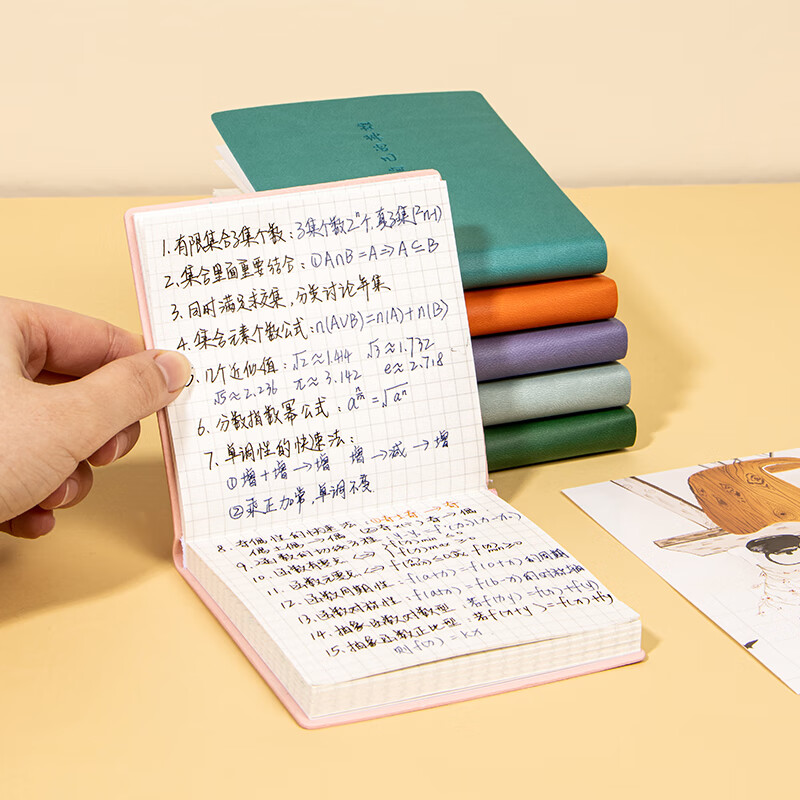 1. 有限集合子集个数：子集个数2ⁿ个,真子集(2ⁿ-1)
2. 集合里面重要结合：①A∩B=A⇒A⊆B
3. 同时满足求交集，分类讨论求并集
4. 集合元素个数公式：n(A∪B)=n(A)+n(B)
5. 几个近似值：√2≈1.414 √3≈1.732
√5≈2.236 π≈3.142 e≈2.718
6. 分数指数幂公式：
7. 单调性的快速法：
①增+增→增 增→减→增
②乘正加常,单调不变
8. 奇偶性的快速法
偶±偶→偶
9. 函数的切线方程
10. 函数有零点 ⇔
11. 函数无零点 ⇔
12. 函数周期性：f(a+x)=f(b+x)的周期
13. 函数对称性：f(a+x)=f(b-x)的对称轴
14. 抽象函数对数型：若f(xy)=f(x)+f(y)
15. 抽象函数正比型：若f(x+y)=f(x)+f(y)
则f(x)=kx